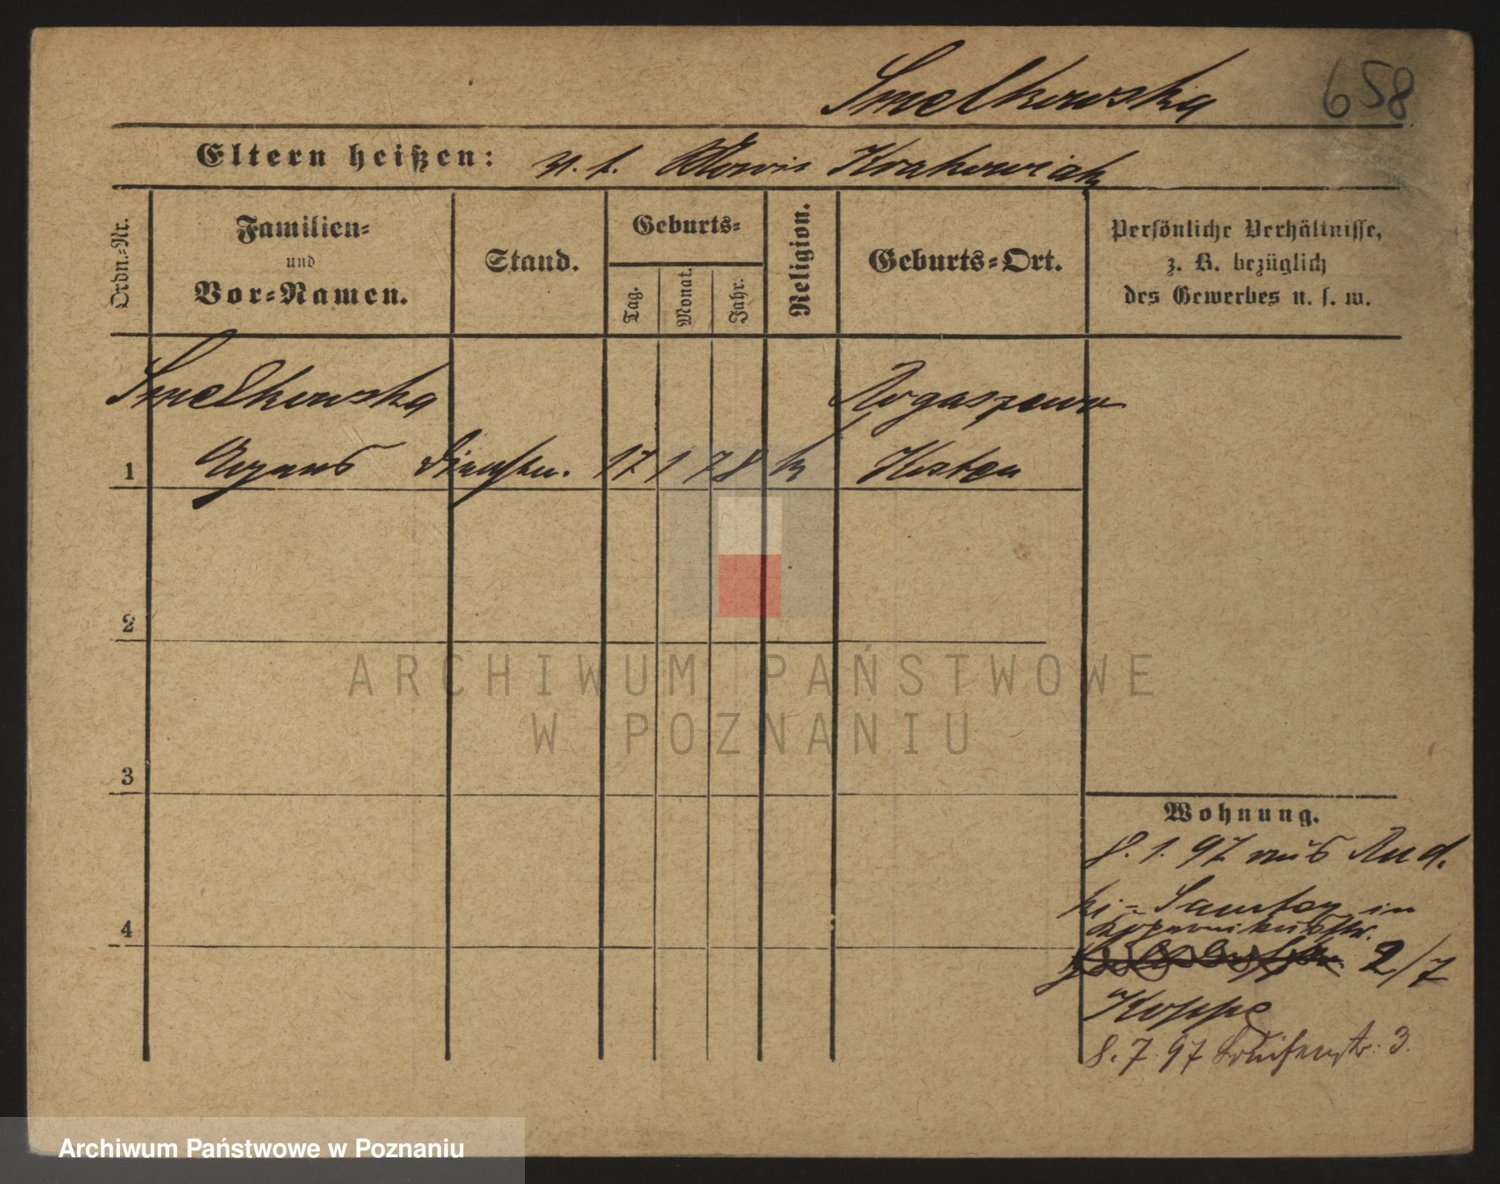 Smelkowska 658
Eltern heißen: Krakowiak
Ordn.=Nr.
Familien=
und
Vor=Namen.
Stand.
Geburts=
Tag.
Monat.
Jahr.
Religion.
Geburts=Ort.
Persönliche Verhältnisse,
z. B. bezüglich
des Gewerbes u. s. w.
Smelkowska Rogaszewo
1 Agnes 17 1 78 k Kosten
2
3
4
Wohnung.
8. 1. 97 aus Rud.
ki = Samter in
Kopernikusstr.
2/7
Koppe
8. 7. 97 Louisenstr. 3.
ARCHIWUM PAŃSTWOWE
W POZNANIU
Archiwum Państwowe w Poznaniu